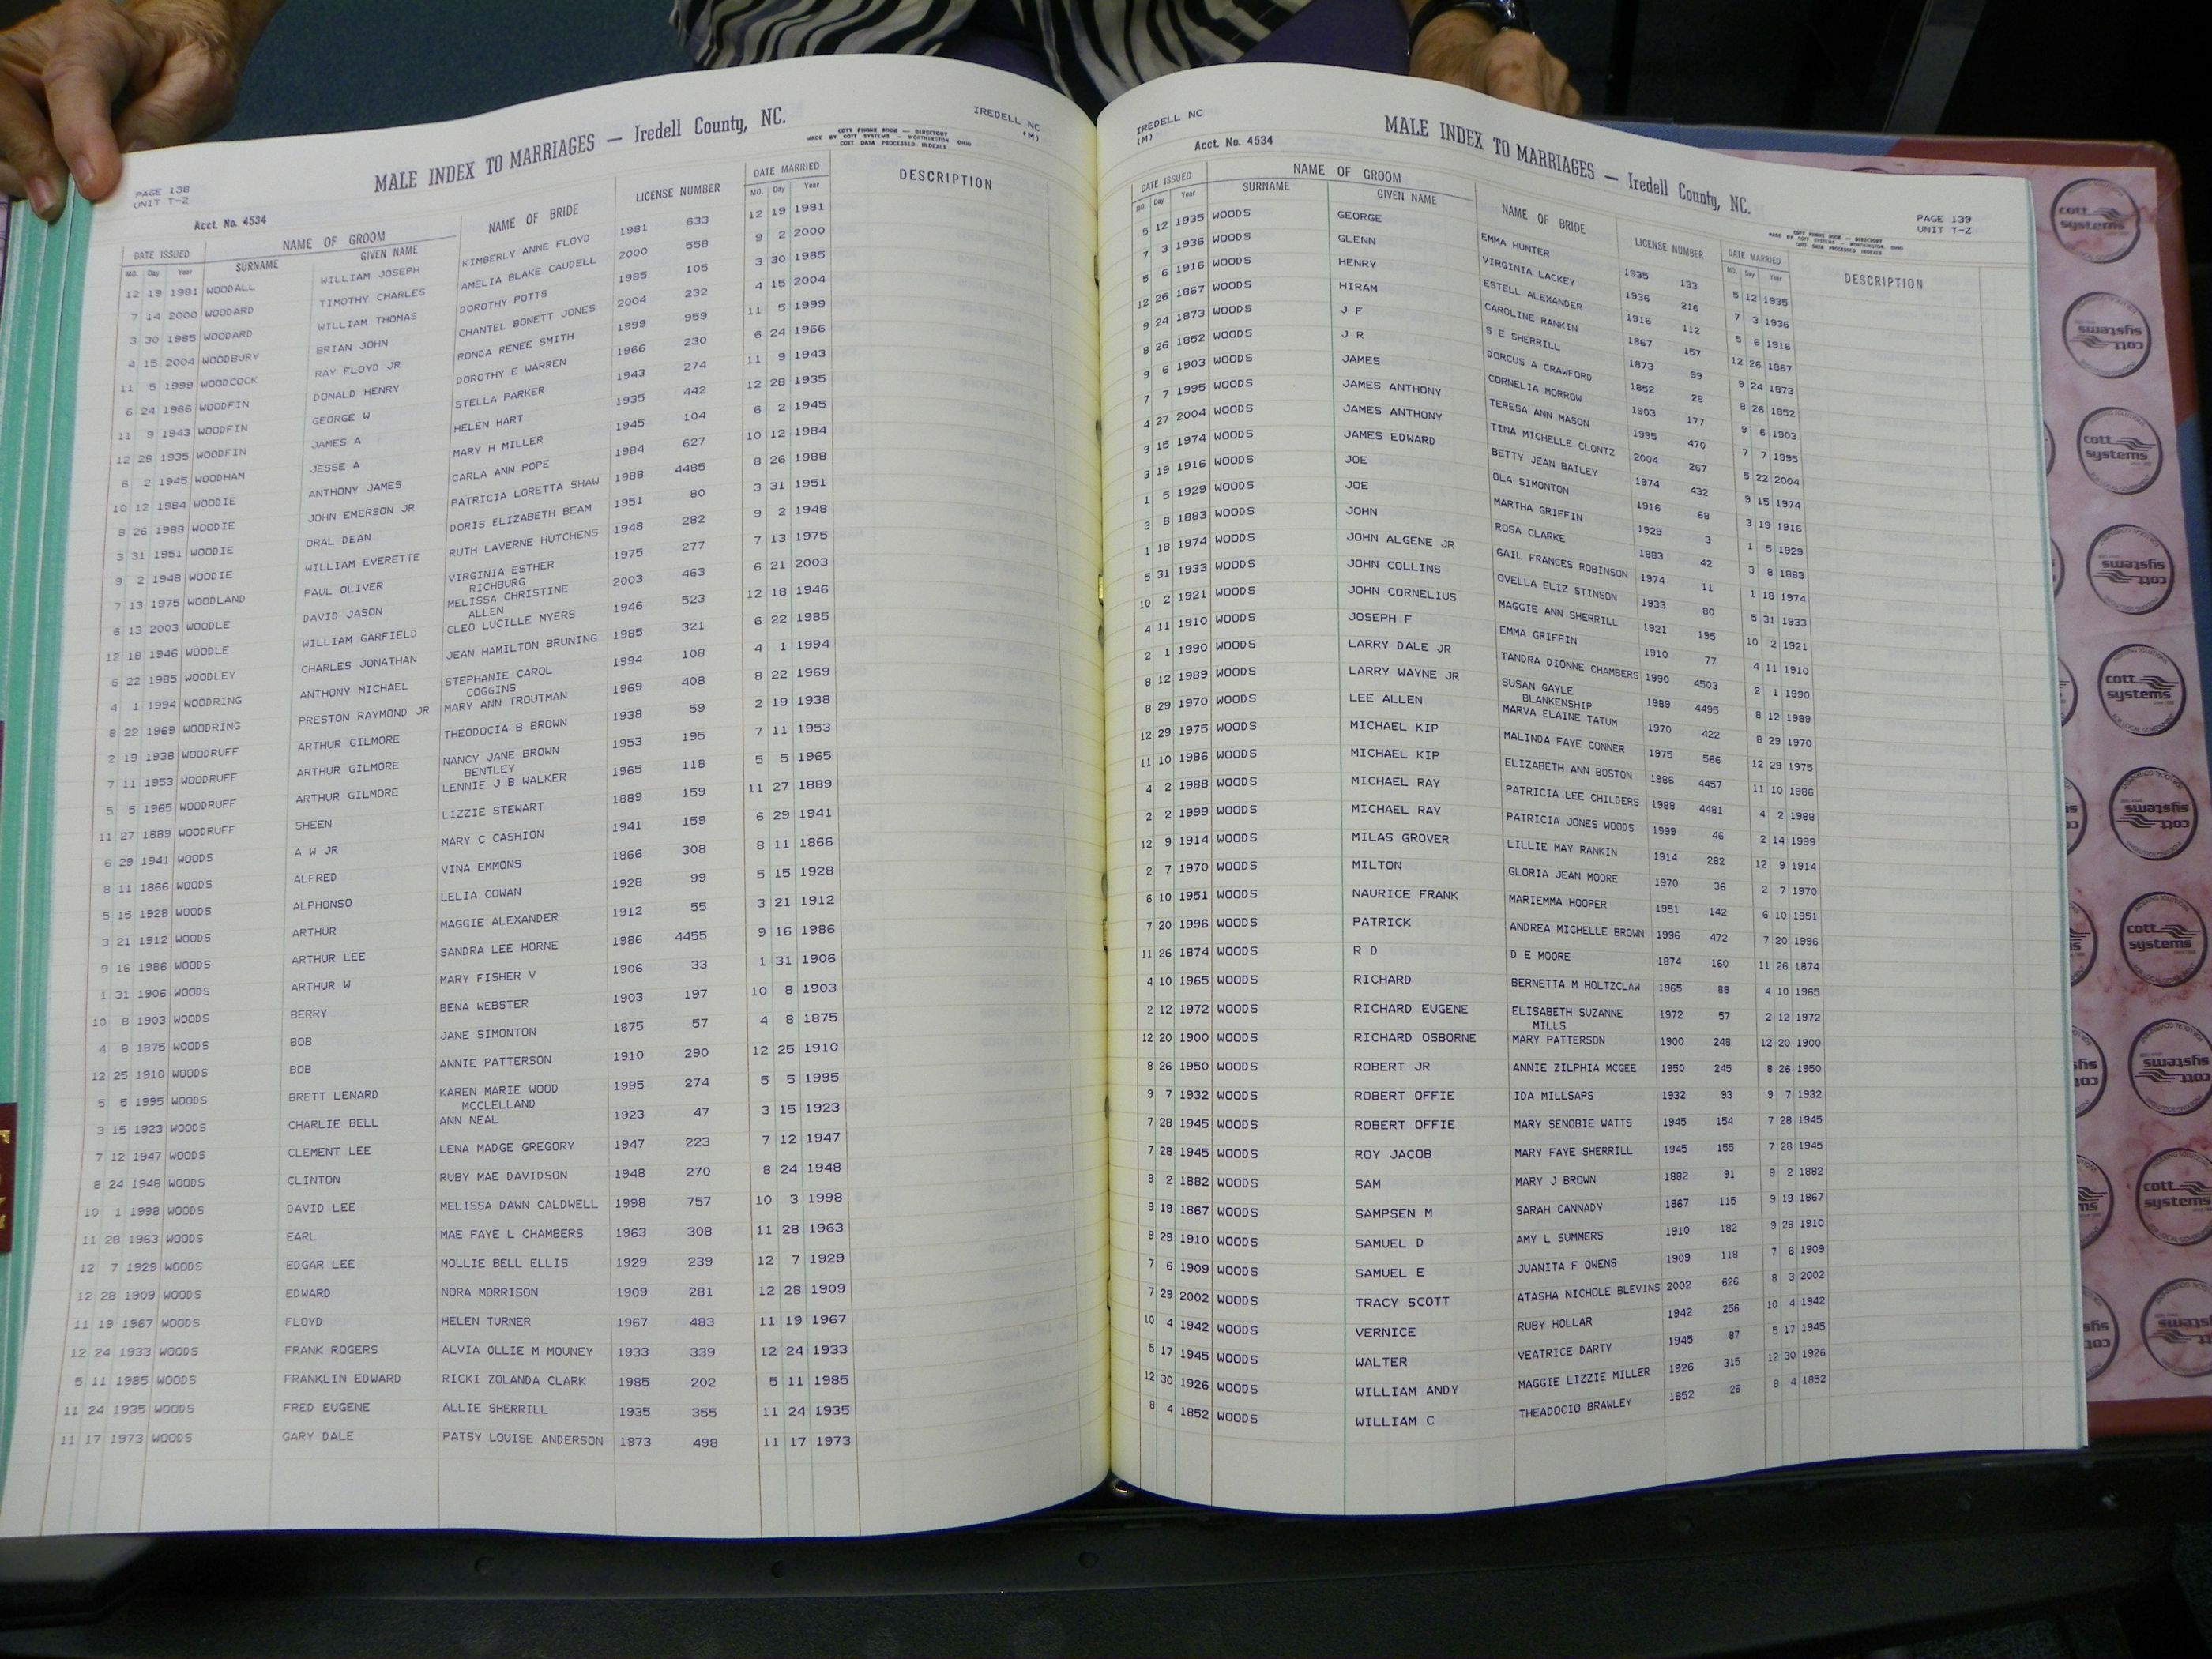 IREDELL NC
(M)
MALE INDEX TO MARRIAGES — Iredell County, NC.
COTT PHONE BOOK — DIRECTORY
MADE BY COTT SYSTEMS — WORTHINGTON, OHIO
COTT DATA PROCESSED INDEXES
PAGE 138
UNIT T-Z
Acct. No. 4534
DATE ISSUED NAME OF GROOM NAME OF BRIDE LICENSE NUMBER DATE MARRIED DESCRIPTION
MO. Day Year SURNAME GIVEN NAME MO. Day Year
12 19 1981 WOODALL WILLIAM JOSEPH KIMBERLY ANNE FLOYD 1981 633 12 19 1981
7 14 2000 WOODARD TIMOTHY CHARLES AMELIA BLAKE CAUDELL 2000 558 9 2 2000
3 30 1985 WOODARD WILLIAM THOMAS DOROTHY POTTS 1985 105 3 30 1985
4 15 2004 WOODBURY BRIAN JOHN CHANTEL BONETT JONES 2004 232 4 15 2004
11 5 1999 WOODCOCK RAY FLOYD JR RONDA RENEE SMITH 1999 959 11 5 1999
6 24 1966 WOODFIN DONALD HENRY DOROTHY E WARREN 1966 230 6 24 1966
11 9 1943 WOODFIN GEORGE W STELLA PARKER 1943 274 11 9 1943
12 28 1935 WOODFIN JAMES A HELEN HART 1935 442 12 28 1935
6 2 1945 WOODHAM JESSE A MARY H MILLER 1945 104 6 2 1945
10 12 1984 WOODIE ANTHONY JAMES CARLA ANN POPE 1984 627 10 12 1984
8 26 1988 WOODIE JOHN EMERSON JR PATRICIA LORETTA SHAW 1988 4485 8 26 1988
3 31 1951 WOODIE ORAL DEAN DORIS ELIZABETH BEAM 1951 80 3 31 1951
9 2 1948 WOODIE WILLIAM EVERETTE RUTH LAVERNE HUTCHENS 1948 282 9 2 1948
7 13 1975 WOODLAND PAUL OLIVER VIRGINIA ESTHER 1975 277 7 13 1975
RICHBURG
6 13 2003 WOODLE DAVID JASON MELISSA CHRISTINE 2003 463 6 21 2003
ALLEN
12 18 1946 WOODLE WILLIAM GARFIELD CLEO LUCILLE MYERS 1946 523 12 18 1946
6 22 1985 WOODLEY CHARLES JONATHAN JEAN HAMILTON BRUNING 1985 321 6 22 1985
4 1 1994 WOODRING ANTHONY MICHAEL STEPHANIE CAROL 1994 108 4 1 1994
COGGINS
8 22 1969 WOODRING PRESTON RAYMOND JR MARY ANN TROUTMAN 1969 408 8 22 1969
2 19 1938 WOODRUFF ARTHUR GILMORE THEODOCIA B BROWN 1938 59 2 19 1938
7 11 1953 WOODRUFF ARTHUR GILMORE NANCY JANE BROWN 1953 195 7 11 1953
BENTLEY
5 5 1965 WOODRUFF ARTHUR GILMORE LENNIE J B WALKER 1965 118 5 5 1965
11 27 1889 WOODRUFF SHEEN LIZZIE STEWART 1889 159 11 27 1889
6 29 1941 WOODS A W JR MARY C CASHION 1941 159 6 29 1941
8 11 1866 WOODS ALFRED VINA EMMONS 1866 308 8 11 1866
5 15 1928 WOODS ALPHONSO LELIA COWAN 1928 99 5 15 1928
3 21 1912 WOODS ARTHUR MAGGIE ALEXANDER 1912 55 3 21 1912
9 16 1986 WOODS ARTHUR LEE SANDRA LEE HORNE 1986 4455 9 16 1986
1 31 1906 WOODS ARTHUR W MARY FISHER V 1906 33 1 31 1906
10 8 1903 WOODS BERRY BENA WEBSTER 1903 197 10 8 1903
4 8 1875 WOODS BOB JANE SIMONTON 1875 57 4 8 1875
12 25 1910 WOODS BOB ANNIE PATTERSON 1910 290 12 25 1910
5 5 1995 WOODS BRETT LENARD KAREN MARIE WOOD 1995 274 5 5 1995
MCCLELLAND
3 15 1923 WOODS CHARLIE BELL ANN NEAL 1923 47 3 15 1923
7 12 1947 WOODS CLEMENT LEE LENA MADGE GREGORY 1947 223 7 12 1947
8 24 1948 WOODS CLINTON RUBY MAE DAVIDSON 1948 270 8 24 1948
10 1 1998 WOODS DAVID LEE MELISSA DAWN CALDWELL 1998 757 10 3 1998
11 28 1963 WOODS EARL MAE FAYE L CHAMBERS 1963 308 11 28 1963
12 7 1929 WOODS EDGAR LEE MOLLIE BELL ELLIS 1929 239 12 7 1929
12 28 1909 WOODS EDWARD NORA MORRISON 1909 281 12 28 1909
11 19 1967 WOODS FLOYD HELEN TURNER 1967 483 11 19 1967
12 24 1933 WOODS FRANK ROGERS ALVIA OLLIE M MOUNEY 1933 339 12 24 1933
5 11 1985 WOODS FRANKLIN EDWARD RICKI ZOLANDA CLARK 1985 202 5 11 1985
11 24 1935 WOODS FRED EUGENE ALLIE SHERRILL 1935 355 11 24 1935
11 17 1973 WOODS GARY DALE PATSY LOUISE ANDERSON 1973 498 11 17 1973
IREDELL NC
(M)
Acct. No. 4534
MALE INDEX TO MARRIAGES — Iredell County, NC.
COTT PHONE BOOK — DIRECTORY
MADE BY COTT SYSTEMS — WORTHINGTON, OHIO
COTT DATA PROCESSED INDEXES
PAGE 139
UNIT T-Z
DATE ISSUED NAME OF GROOM NAME OF BRIDE LICENSE NUMBER DATE MARRIED DESCRIPTION
MO. Day Year SURNAME GIVEN NAME MO. Day Year
5 12 1935 WOODS GEORGE EMMA HUNTER 1935 133 5 12 1935
7 3 1936 WOODS GLENN VIRGINIA LACKEY 1936 216 7 3 1936
5 6 1916 WOODS HENRY ESTELL ALEXANDER 1916 112 5 6 1916
12 26 1867 WOODS HIRAM CAROLINE RANKIN 1867 157 12 26 1867
9 24 1873 WOODS J F S E SHERRILL 1873 99 9 24 1873
8 26 1852 WOODS J R DORCUS A CRAWFORD 1852 28 8 26 1852
9 6 1903 WOODS JAMES CORNELIA MORROW 1903 177 9 6 1903
7 7 1995 WOODS JAMES ANTHONY TERESA ANN MASON 1995 470 7 7 1995
4 27 2004 WOODS JAMES ANTHONY TINA MICHELLE CLONTZ 2004 267 5 22 2004
9 15 1974 WOODS JAMES EDWARD BETTY JEAN BAILEY 1974 432 9 15 1974
3 19 1916 WOODS JOE OLA SIMONTON 1916 68 3 19 1916
1 5 1929 WOODS JOE MARTHA GRIFFIN 1929 3 1 5 1929
3 8 1883 WOODS JOHN ROSA CLARKE 1883 42 3 8 1883
1 18 1974 WOODS JOHN ALGENE JR GAIL FRANCES ROBINSON 1974 11 1 18 1974
5 31 1933 WOODS JOHN COLLINS OVELLA ELIZ STINSON 1933 80 5 31 1933
10 2 1921 WOODS JOHN CORNELIUS MAGGIE ANN SHERRILL 1921 195 10 2 1921
4 11 1910 WOODS JOSEPH F EMMA GRIFFIN 1910 77 4 11 1910
2 1 1990 WOODS LARRY DALE JR TANDRA DIONNE CHAMBERS 1990 4503 2 1 1990
8 12 1989 WOODS LARRY WAYNE JR SUSAN GAYLE 1989 4495 8 12 1989
BLANKENSHIP
8 29 1970 WOODS LEE ALLEN MARVA ELAINE TATUM 1970 422 8 29 1970
12 29 1975 WOODS MICHAEL KIP MALINDA FAYE CONNER 1975 566 12 29 1975
11 10 1986 WOODS MICHAEL KIP ELIZABETH ANN BOSTON 1986 4457 11 10 1986
4 2 1988 WOODS MICHAEL RAY PATRICIA LEE CHILDERS 1988 4481 4 2 1988
2 2 1999 WOODS MICHAEL RAY PATRICIA JONES WOODS 1999 46 2 14 1999
12 9 1914 WOODS MILAS GROVER LILLIE MAY RANKIN 1914 282 12 9 1914
2 7 1970 WOODS MILTON GLORIA JEAN MOORE 1970 36 2 7 1970
6 10 1951 WOODS NAURICE FRANK MARIEMMA HOOPER 1951 142 6 10 1951
7 20 1996 WOODS PATRICK ANDREA MICHELLE BROWN 1996 472 7 20 1996
11 26 1874 WOODS R D D E MOORE 1874 160 11 26 1874
4 10 1965 WOODS RICHARD BERNETTA M HOLTZCLAW 1965 88 4 10 1965
2 12 1972 WOODS RICHARD EUGENE ELISABETH SUZANNE 1972 57 2 12 1972
MILLS
12 20 1900 WOODS RICHARD OSBORNE MARY PATTERSON 1900 248 12 20 1900
8 26 1950 WOODS ROBERT JR ANNIE ZILPHIA MCGEE 1950 245 8 26 1950
9 7 1932 WOODS ROBERT OFFIE IDA MILLSAPS 1932 93 9 7 1932
7 28 1945 WOODS ROBERT OFFIE MARY SENOBIE WATTS 1945 154 7 28 1945
7 28 1945 WOODS ROY JACOB MARY FAYE SHERRILL 1945 155 7 28 1945
9 2 1882 WOODS SAM MARY J BROWN 1882 91 9 2 1882
9 19 1867 WOODS SAMPSEN M SARAH CANNADY 1867 115 9 19 1867
9 29 1910 WOODS SAMUEL D AMY L SUMMERS 1910 182 9 29 1910
7 6 1909 WOODS SAMUEL E JUANITA F OWENS 1909 118 7 6 1909
7 29 2002 WOODS TRACY SCOTT ATASHA NICHOLE BLEVINS 2002 626 8 3 2002
10 4 1942 WOODS VERNICE RUBY HOLLAR 1942 256 10 4 1942
5 17 1945 WOODS WALTER VEATRICE DARTY 1945 87 5 17 1945
12 30 1926 WOODS WILLIAM ANDY MAGGIE LIZZIE MILLER 1926 315 12 30 1926
8 4 1852 WOODS WILLIAM C THEADOCIO BRAWLEY 1852 26 8 4 1852
cott systems
cott systems
cott systems
cott systems
cott systems
cott systems
cott systems
cott systems
cott systems
cott systems